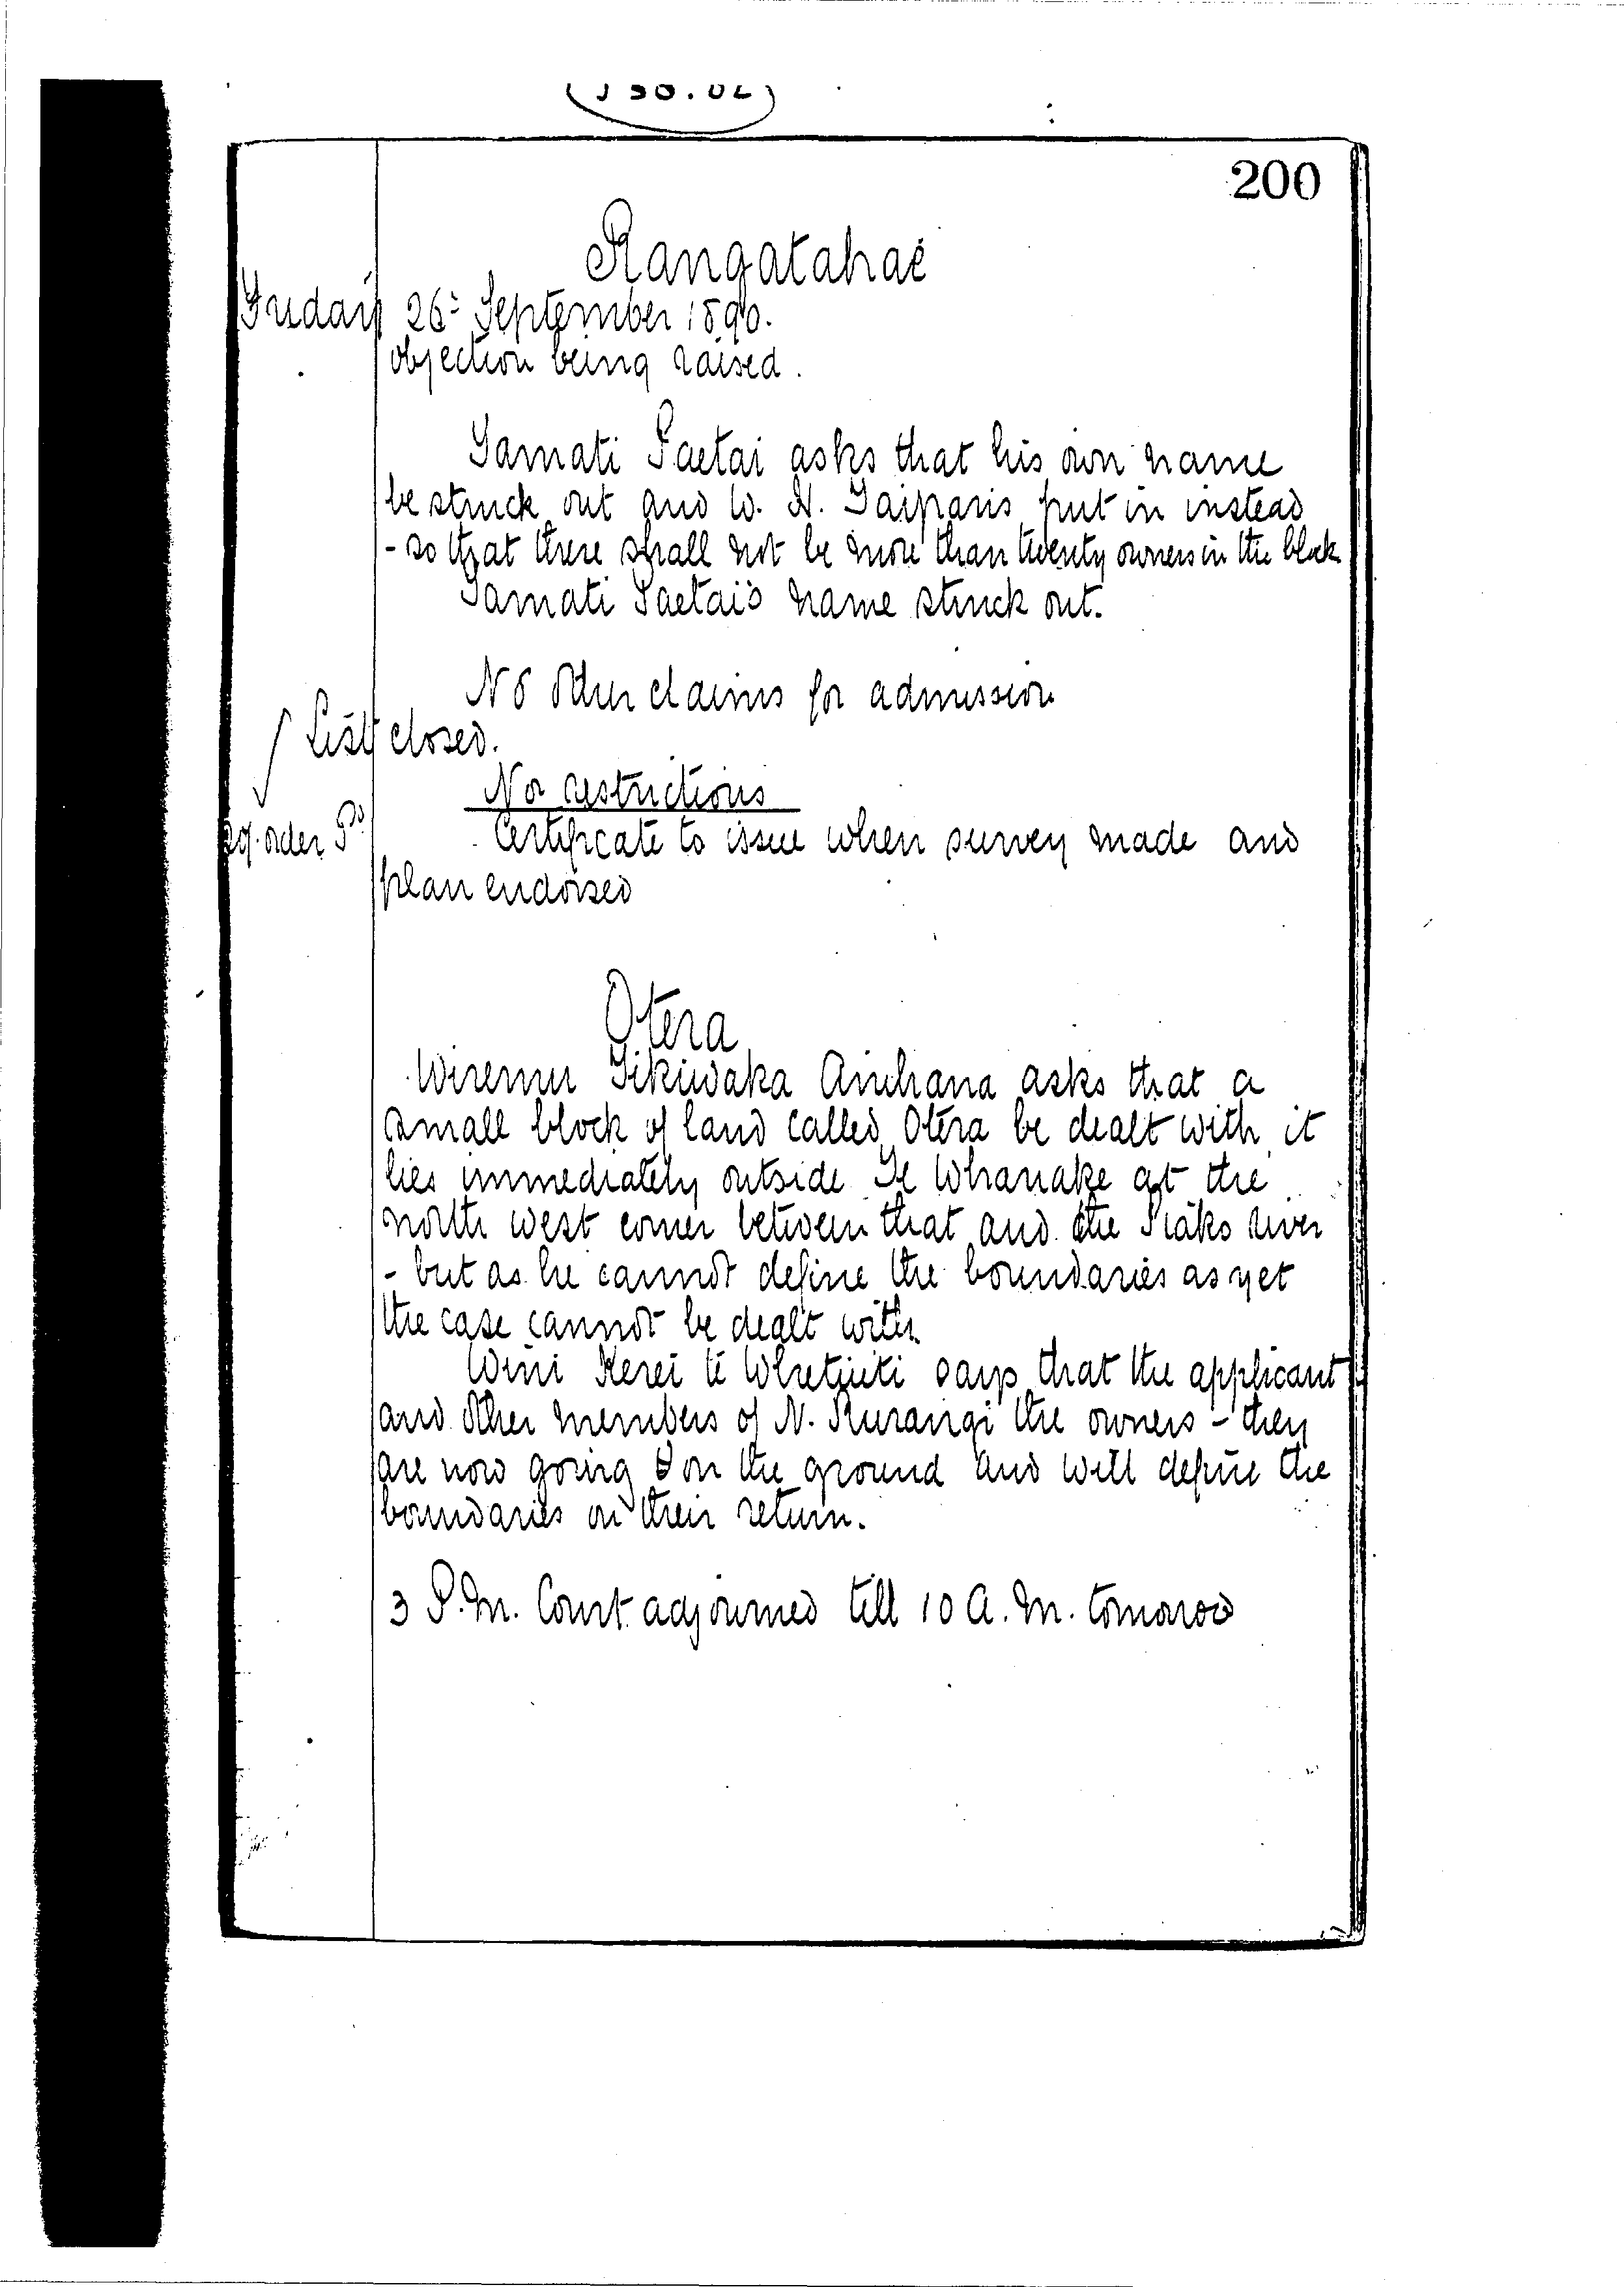 200
Rangatahae
Friday 26: September 1890.
objection being raised.
Tamati Paetai asks that his own name
be struck out and W. H. Taiparis put in instead
- so that there shall not be more than twenty owners in the block
Tamati Paetai's name struck out.
No other claims for admission
List closed.
No restrictions
order
Certificate to issue when survey made and
plan endorsed
Otera
Wiremu Tikiwaka asks that a
small block of land called Otera be dealt with it
lies immediately outside Te Whanake at the
north west corner between that and the Piako river
- but as he cannot define the boundaries as yet
the case cannot be dealt with
Wini Kerei te Whetuiti says that the applicant
and other members of N. Rurangi the owners - they
are now going on the ground and will define the
boundaries on their return.
3 P.M. Court adjourned till 10 A.M. tomorow